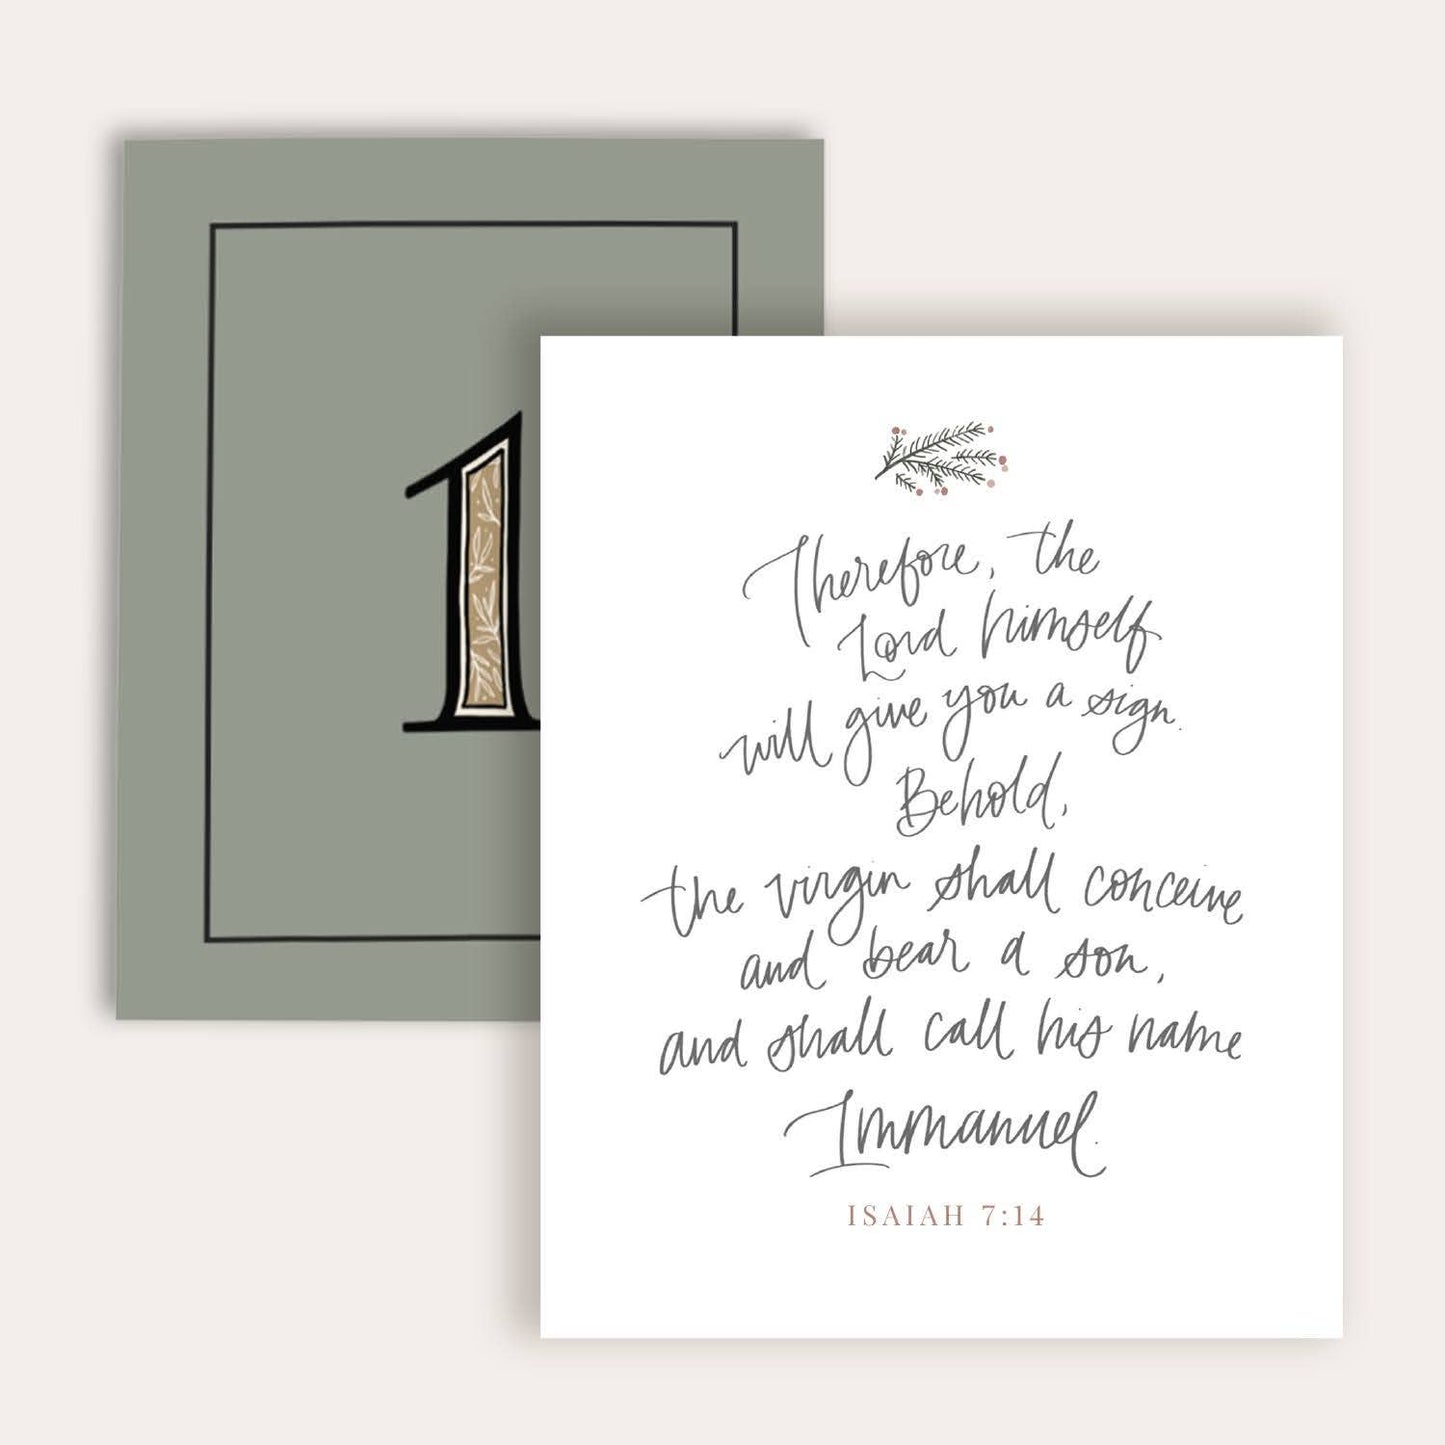 1
Therefore, the
Lord himself
will give you a sign.
Behold,
the virgin shall conceive
and bear a son,
and shall call his name
Immanuel.
ISAIAH 7:14